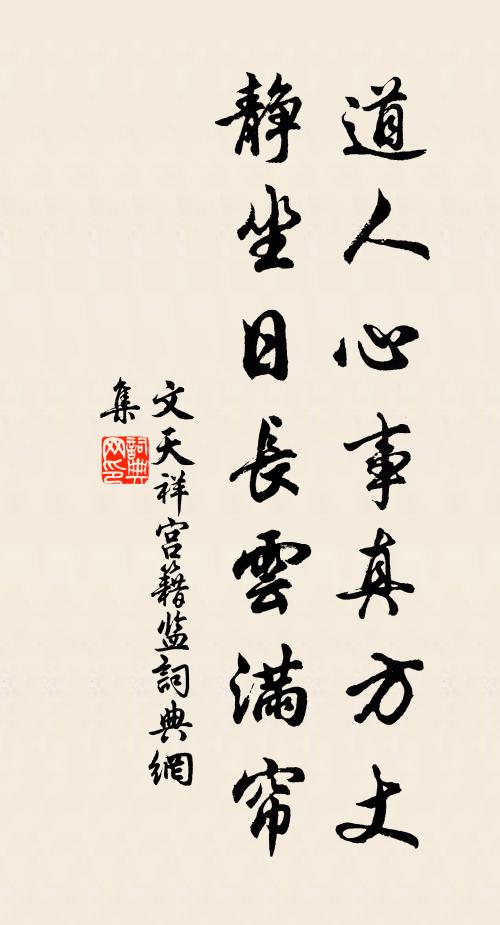 道人心事真方丈
静坐日長雲滿帘
文天祥宫籍监詞典網
集
詞典網印